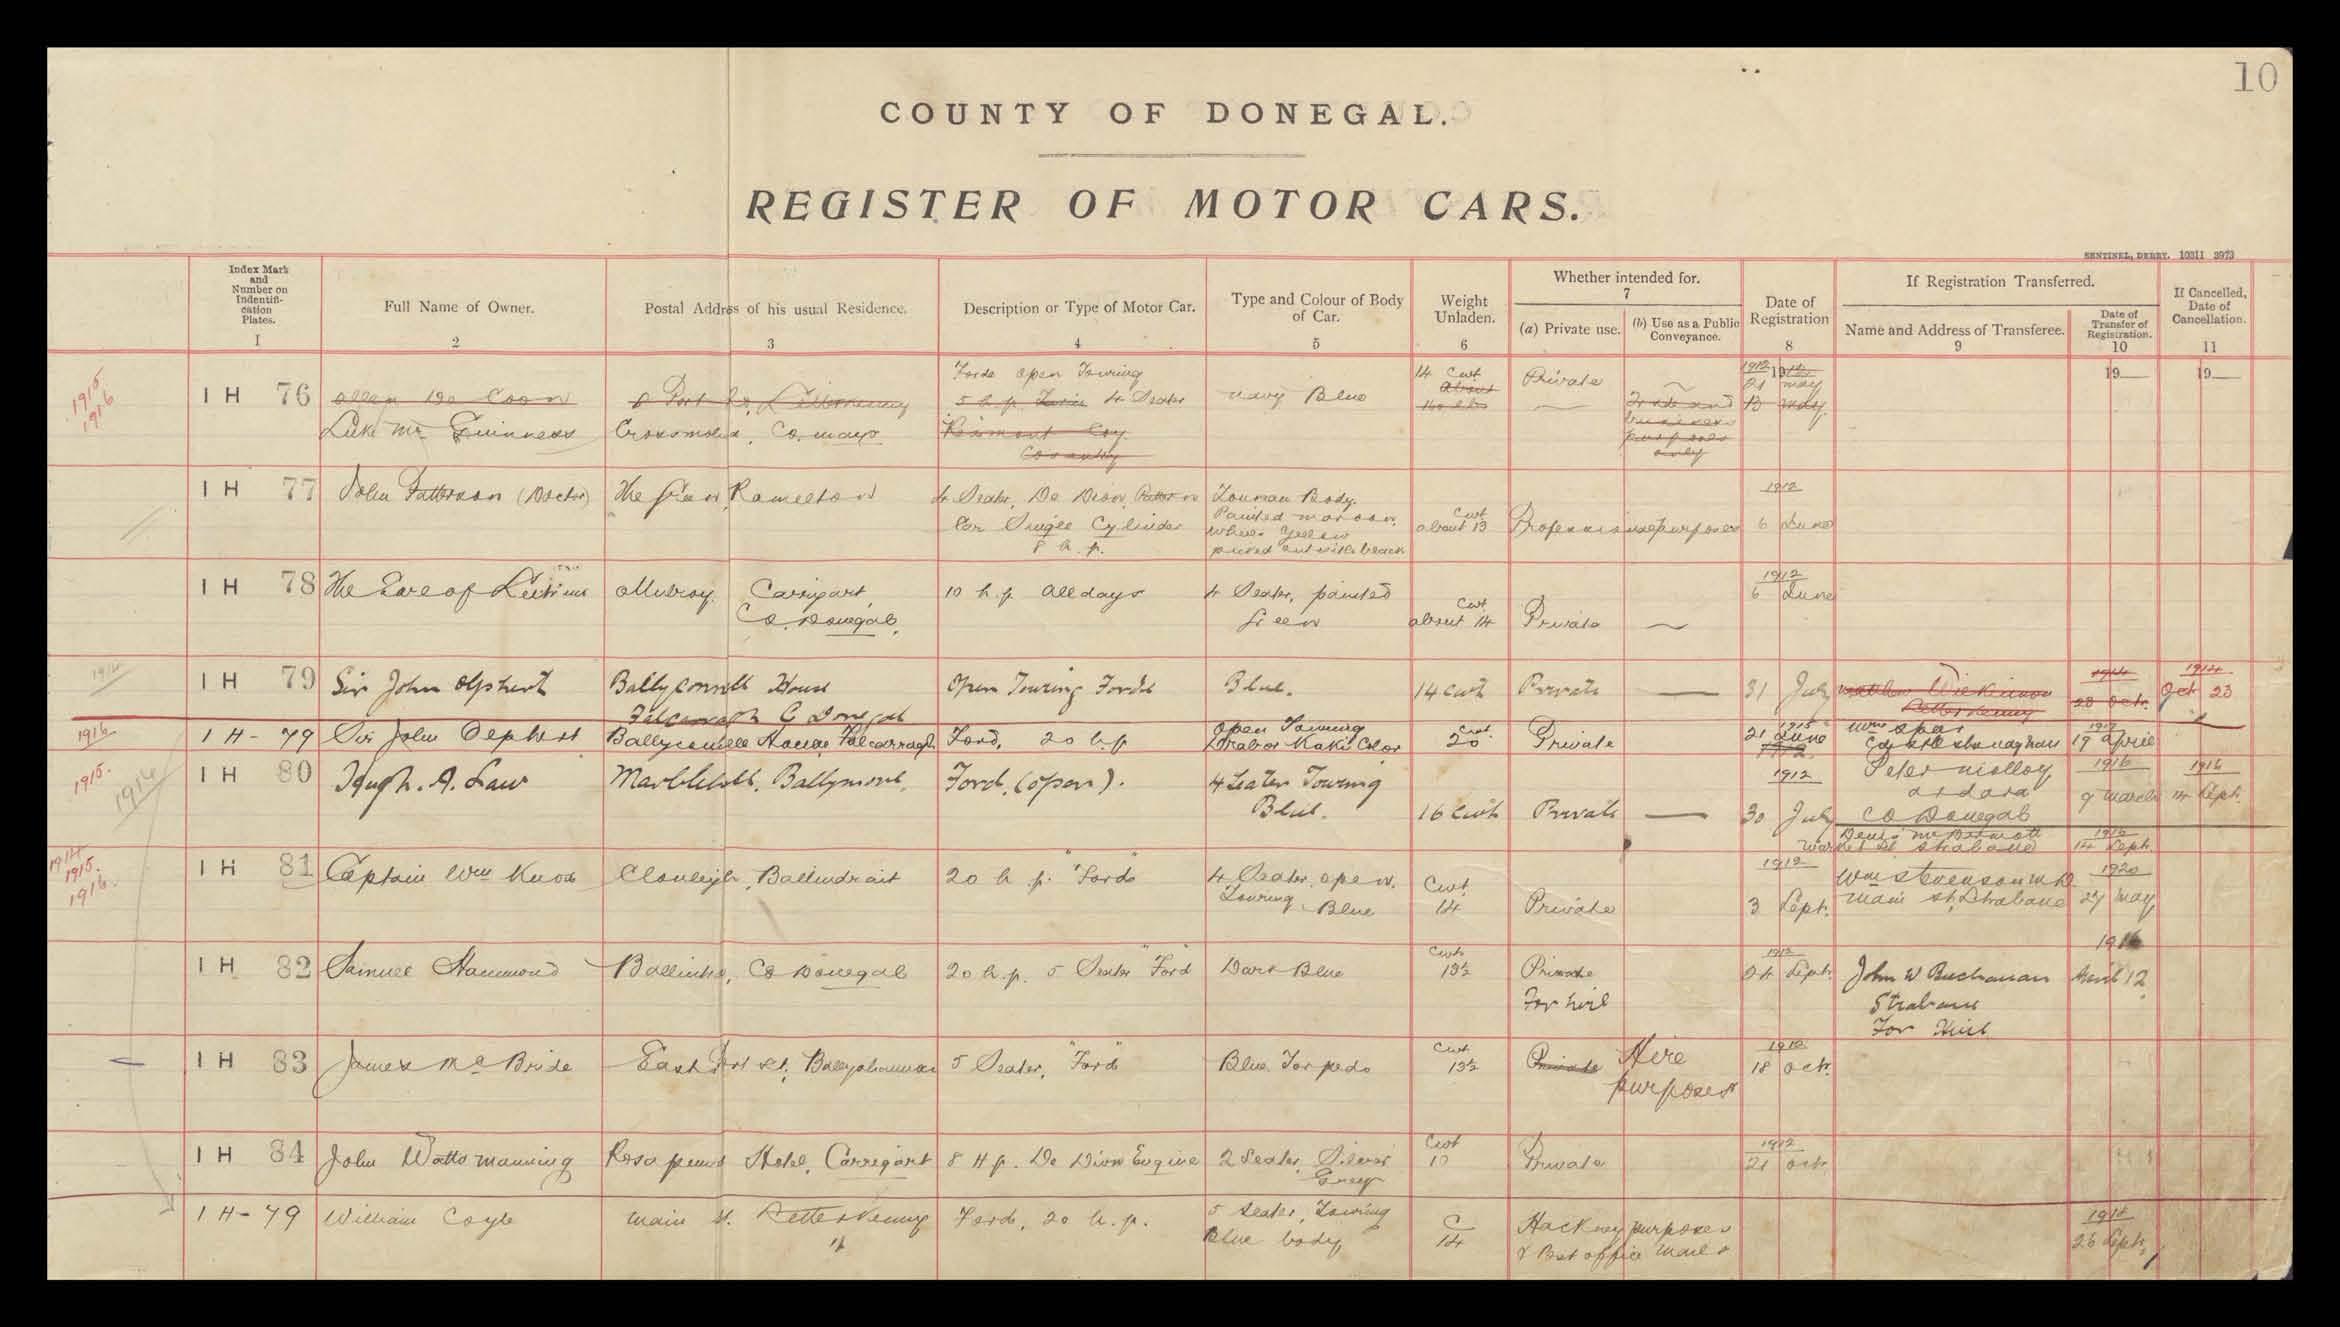 10
COUNTY OF DONEGAL.
REGISTER OF MOTOR CARS.
SENTINEL, DERRY. 10311 3973
Index Mark and Number on Indentifi-cation Plates. 1
Full Name of Owner. 2
Postal Address of his usual Residence. 3
Description or Type of Motor Car. 4
Type and Colour of Body of Car. 5
Weight Unladen. 6
Whether intended for. 7
(a) Private use.
(b) Use as a Public Conveyance.
Date of Registration 8
If Registration Transferred.
Name and Address of Transferee. 9
Date of Transfer of Registration. 10
If Cancelled, Date of Cancellation. 11
1915
1916
Forde open Touring
14 Cwt
1912
19
19
IH 76
5 h.p. 4 Seater
Navy Blue
about
Private
21 May
13 May
Luke Mc Guinness
Crossmolina, Co. Mayo
Coventry
only
IH 77 John Patterson (Doctor) The Green, Ramelton
4 Seater, De Dion
Car Single Cylinder
8 h.p.
Tonneau Body.
Painted maroon.
Wheels Yellow
picked out with black
Cwt
about 13
Professional purposes
1912
6 June
IH 78 The Earl of Leitrim
Mulroy, Carrigart,
Co. Donegal.
10 h.p. Alldays
4 Seater, painted
Green
Cwt
about 14
Private
1912
6 June
1914
IH 79 Sir John Olphert
Ballyconnell House
Falcarragh Co Donegal
Open Touring Forde
Blue.
14 cwt
Private
31 July
Wilkinson
Letterkenny
1914
23 Octr.
1914
Oct 23
1916
IH-79 Sir John Olphert
Ballyconnell House Falcarragh
Ford, 20 h.p
Open Touring
Kaki Color
Cwt.
20
Private
1915
21 June
1912
Wm
19 April
1915.
1914
IH 80 Hugh. A. Law
Marblehill, Ballymore,
Ford, (open).
4 Seater Touring
Blue.
16 Cwt
Private
1912
30 July
Peter Molloy
Ardara
Co Donegal
1916
9 March
1916
14 Sept.
Denis McDermott
Market St Strabane
1916
14 Sept.
1914
1915.
1916.
IH 81 Captain Wm Knox
Clonleigh, Ballindrait
20 h.p. "Forde"
4 Seater, open.
Touring, Blue
Cwt
14
Private
1912
3 Sept.
Wm Stevenson
Main St, Strabane
1920
27 May
IH 82 Samuel Hammond
Ballintra, Co Donegal
20 h.p. 5 Seater "Ford"
Dark Blue
Cwt
13½
Private
For hire
1912
24 Sept.
John W Buchanan
Strabane
For Hire
1916
April 12
IH 83 James McBride
East Port St, Ballyshannon
5 Seater, "Ford"
Blue Torpedo
Cwt
13½
Private
Hire
purposes
1912
18 Oct.
IH 84 John Watts Manning
Rosapenna Hotel, Carrigart
8 H.p. De Dion Engine
2 Seater, Silver
Grey
Cwt
10
Private
1912
21 Oct
IH-79 William Coyle
Main St. Letterkenny
Ford, 20 h.p.
5 Seater, Touring
Blue body
C
14
Hackney purposes
& Post office Mails
26 Sept,